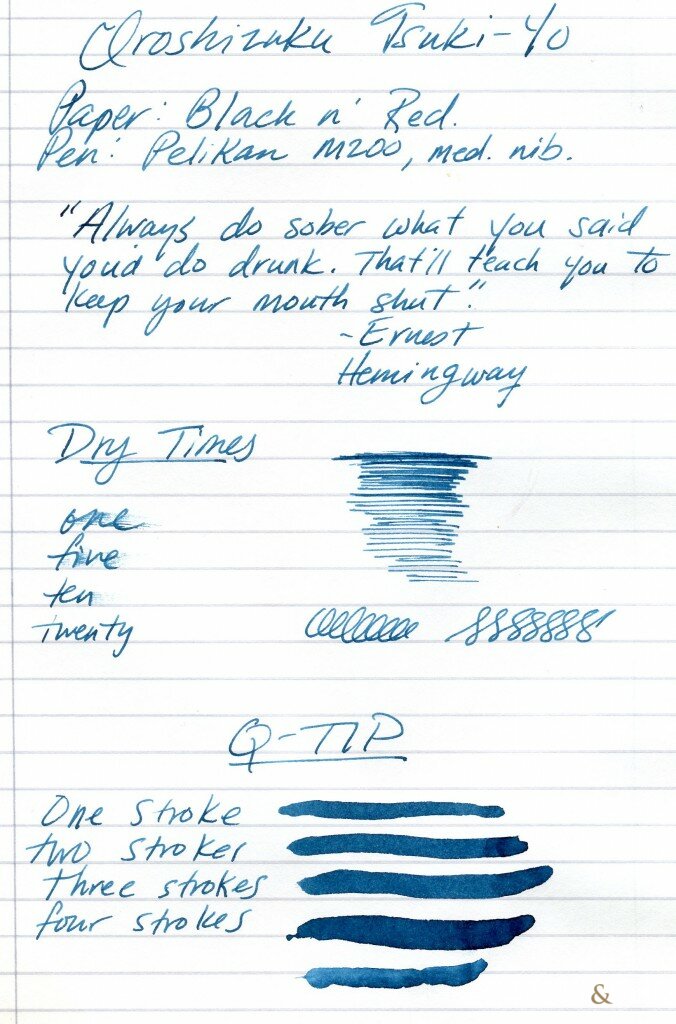 Iroshizuku Tsuki-Yo
Paper: Black n' Red.
Pen: Pelikan M200, med. nib.
"Always do sober what you said
you'd do drunk. That'll teach you to
keep your mouth shut."
-Ernest
Hemingway
Dry Times
one
five
ten
twenty
Q-TIP
One stroke
two strokes
three strokes
four strokes
&